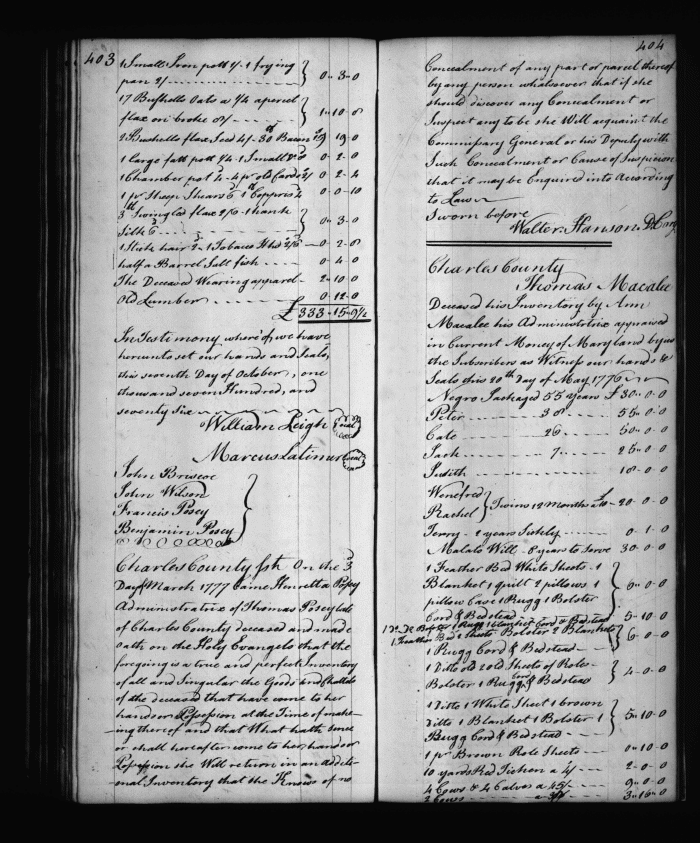 403
1 Small Iron pott 2/- 1 frying
pan 2/ 0 - 3 - 0
17 Bushells Oats a 1/4 a parcel
flax on broke 8/ 1 - 10 - 8
2 Bushells flax Seed 4/- 30 Bacon 19 - 0
1 large fatt pott 1/4 - 1 Small Do 0 - 2 - 0
1 Chamber pot 4 - 4 pr old Cards 2/ 0 - 2 - 4
1 pr Sheep Shears 6 1 lb Coppris 4 0 - 0 - 10
3 lb Swingled flax 2/6 - 1 hank
Silk 6 0 - 3 - 0
hair 2 - 1 Tobacco 2/6 0 - 2 - 8
half a Barrel Salt fish 0 - 4 - 0
The Deceased Wearing apparel 2 - 10 - 0
Old Lumber 0 - 12 - 0
£ 333 - 15 - 9 1/4
In Testimony whereof, we have
hereunto set our hands and Seals,
this seventh Day of October, one
thousand seven Hundred, and
seventy Six
William Leigh Seal
Marcus Latimer Seal
John Briscoe
John Wilson
Francis Posey
Benjamin Posey
Charles County sst. On the 3
Day of March 1777 Came Henretta Posey
Administratrix of Thomas Posey late
of Charles County deceased and made
Oath on the Holy Evangels that the
foregoing is a true and perfect Inventory
of all and Singular the Goods and Chattels
of the deceased that have come to her
hand or Possession at the Time of make-
-ing thereof and that What hath since
or shall hereafter come to her hand or
Possession she Will return in an additi-
onal Inventory that she Knows of no
404
Concealment of any part or parcel thereof
by any person whatsoever that if she
should discover any Concealment or
Suspect any to be she Will acquaint the
Commissary General or his Deputy with
Such Concealment or Cause of Suspicion
that it may be Enquired into According
to Law
Sworn before
Walter Hanson D. Comy
Charles County
Thomas Macalee
Deceased his Inventory by Ann
Macalee his Administratrix appraised
in Current Money of Maryland by us
the Subscribers as Witness our hands &
Seals this 20th Day of May 1776
Negro 55 Years £ 30 - 0 - 0
Peter 38 55 - 0 - 0
Cate 26 50 - 0 - 0
Jack 7 25 - 0 - 0
Judith 10 - 0 - 0
Wenefred
Rachel } Twins 12 Months 20 - 0 - 0
Terry - 1 years Sickly 0 - 1 - 0
Malato Will - 8 years to Serve 30 - 0 - 0
1 Feather Bed White Sheets - 1
Blanket 1 quilt 2 pillows 1
pillow Case 1 Rugg 1 Bolster
Cord & Bedstead
1 Do Do Bolster 1 Rugg 1 blanket Cord & Bedstead 5 - 10 - 0
1 Feather Bed 1 Sheets Bolster 2 Blankets
1 Rugg Cord & Bedstead 6 - 0 - 0
1 Ditto old 2 old Sheets of Roles
Bolster 1 Rugg Cord & Bedstead 4 - 0 - 0
1 Ditto 1 White Sheet 1 brown
Ditto 1 Blanket 1 Bolster 1
Rugg Cord & Bedstead 5 - 10 - 0
1 pr Brown Role Sheets 0 - 10 - 0
10 yards Red Ticken a 4/ 2 - 0 - 0
4 Cows & 4 Calves a 45/ 9 - 0 - 0
2 Cows 3 - 10 - 0